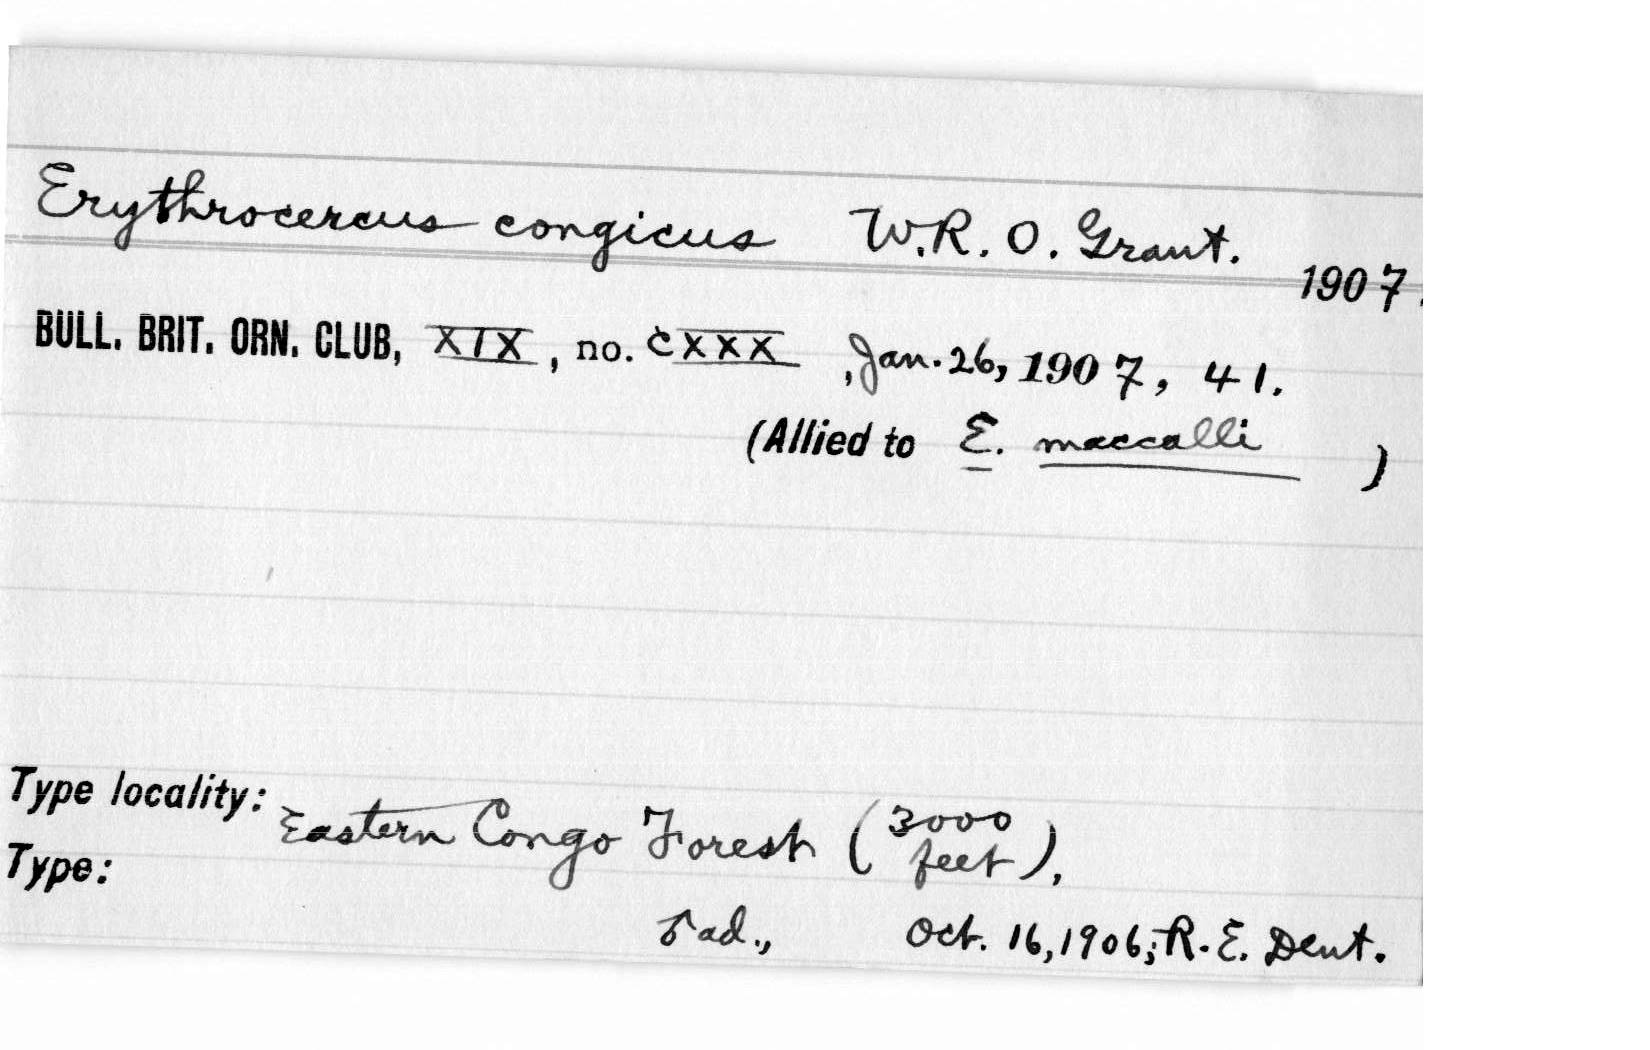 Erythrocercus congicus W.R. O. Grant.
1907.
BULL. BRIT. ORN. CLUB, XIX, no. CXXX, Jan. 26, 1907, 41.
(Allied to E. maccalli )
Type locality: Eastern Congo Forest (3000 feet),
Type:
♂ ad., Oct. 16, 1906; R. E. Dent.